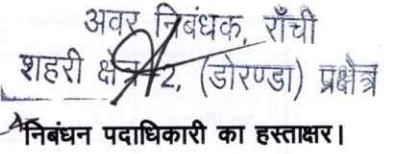 अवर निबंधक, राँची
शहरी क्षेत्र-2, (डोरण्डा) प्रक्षेत्र
निबंधन पदाधिकारी का हस्ताक्षर।